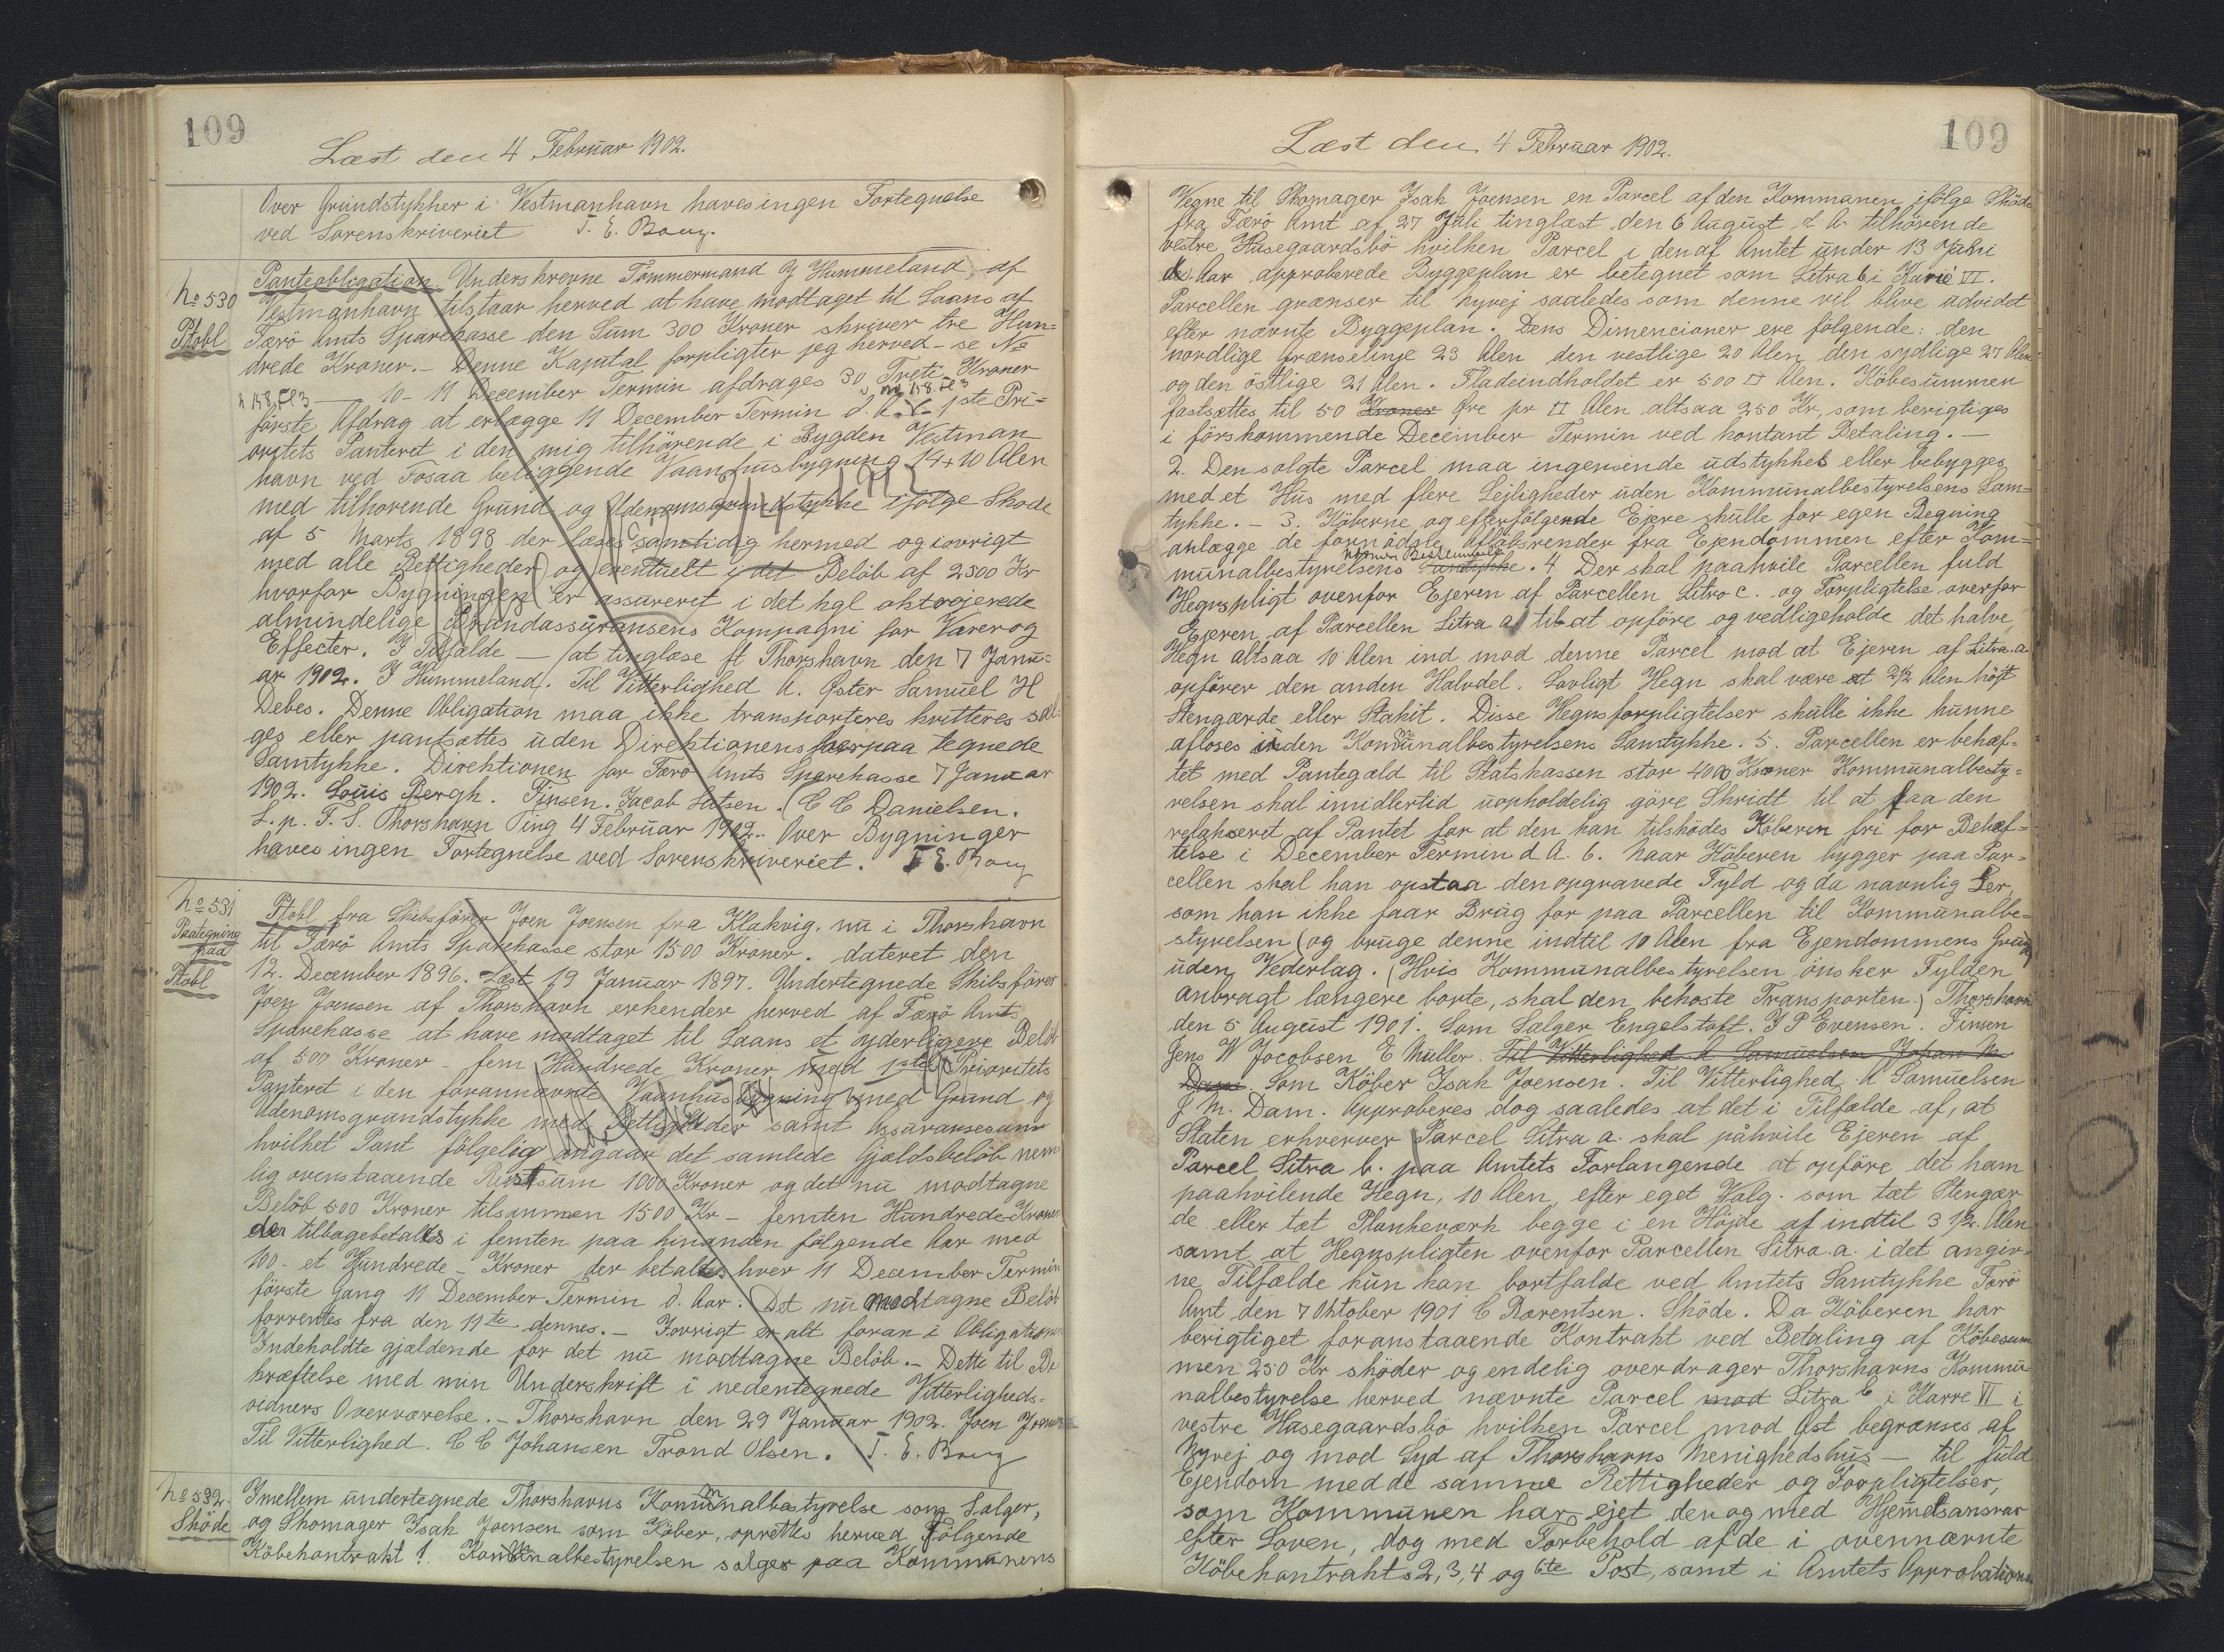 109
Læst den 4 Februar 1902.
Over Grundstykker i Vestmanhavn haves ingen Fortegnelse
ved Sorenskriveriet
No 530
Ptobl
Panteobligation. Underskrevne Tömmermand J Hummeland af
Vestmanhavn tilstaar herved at have modtaget til Laans af
Færö Amts Sparekasse den Sum 300 Kroner skriver tre Hun=
drede Kroner. - Denne Kapital forpligter jeg herved - se No
10 - 11 December Termin afdrages 30 Treti Kroner
förste Afdrag at erlægge 11 December Termin d. A. - 1ste Pri=
oritets Panteret i den mig tilhörende i Bygden Vestman
havn ved Fosaa beliggende Vaanhusbygning 14 x 10 Alen
med tilhorende Grund og Udenomsgrundstykke ifölge Skode
af 5 Marts 1898 der læses samtidig hermed og iovrigt
med alle Rettigheder og eventuelt i det Belöb af 2500 Kr
hvorfor Bygningen er assureret i det kgl oktrojerede
almindelige Brandassuransens Kompagni for Varer og
Effecter. I Tilfælde — at tinglæse ft Thorshavn den 7 Janu=
ar 1902. J Hummeland. Til Vitterlighed A. Öster Samuel H
Debes. Denne Obligation maa ikke transporteres kvitteres sæl
ges eller pantsættes uden Direktionens herpaa tegnede
Samtykke. Direktionen for Færö Amts Sparekasse 7 Januar
1902. Louis Bergh. Finsen. Jacob Lutzen. C C Danielsen.
L. p. F. S. Thorshavn Ting 4 Februar 1902. Over Bygninger
haves ingen Fortegnelse ved Sorenskriveriet.
No 531
Paategning
paa
Ptobl
Ptobl fra Skibsförer Joen Joensen fra Klakvig. nu i Thorshavn
til Færö Amts Sparekasse stor 1500 Kroner. dateret den
12. December 1896. Læst 19 Januar 1897. Undertegnede Skibsförer
Joen Joensen af Thorshavn erkender herved af Færö Amts
Sparekasse at have modtaget til Laans et yderligere Belöb
af 500 Kroner - fem Hundrede Kroner med 1ste Prioritets
Panteret i den forannævnte Vaanhusbygning med Grund og
Udenomsgrundstykke med Rettigheder samt Assuransesum
hvilket Pant fölgelig angaar det samlede Gjældsbelöb nem
lig ovenstaaende Restsum 1000 Kroner og det nu modtagne
Belöb 500 Kroner tilsammen 1500 Kr - femten Hundrede Kroner
der tilbagebetales i femten paa hinanden fölgende Aar med
100 - et Hundrede - Kroner der betales hver 11 December Termin
förste Gang 11 December Termin d. Aar. Det nu modtagne Belöb
forrentes fra den 11te dennes. - Iovrigt er alt foran i Obligationen
Indeholdte gjældende for det nu modtagne Belöb. - Dette til Be
kræftelse med min Underskrift i nedentegnede Vitterligheds=
vidners Overværelse. - Thorshavn den 29 Januar 1902. Joen Joensen
Til Vitterlighed. C C Johansen Trond Olsen.
No 532.
Sköde
Imellem undertegnede Thorshavns Kommunalbestyrelse som Sælger,
og Skomager Isak Joensen som Köber, oprettes herved fölgende
Köbekontrakt 1. Kommunalbestyrelsen sælger paa Kommunens
109
Læst den 4 Februar 1902.
Vegne til Skomager Isak Joensen en Parcel af den Kommunen ifölge Sköde
fra Færö Amt af 27 Juli tinglæst den 6 August d. A. tilhörende
vestre Husegaardsbö hvilken Parcel i den af Amtet under 13 Juni
d. Aar approberede Byggeplan er betegnet som Litra b i Karré VI.
Parcellen grænser til Nyvej saaledes som denne vil blive udvidet
efter nævnte Byggeplan. Dens Dimencioner ere fölgende: den
nordlige Grænselinje 23 Alen den vestlige 20 Alen, den sydlige 27 Alen
og den östlige 21 Alen. Fladeindholdet er 500 □ Alen. Köbesummen
fastsættes til 50 Kroner Øre pr □ Alen altsaa 250 Kr, som berigtiges
i förskommende December Termin ved kontant Betaling. -
2. Den solgte Parcel maa ingensinde udstykkes eller bebygges
med et Hus med flere Lejligheder uden Kommunalbestyrelsens Sam=
tykke. - 3. Köberne og efterfölgende Ejere skulle for egen Regning
anlægge de fornödne Aflöbsrender fra Ejendommen efter Kom=
munalbestyrelsens Samtykke. 4. Der skal paahvile Parcellen fuld
Hegnspligt ovenfor Ejeren af Parcellen Litra c. og Forpligtelse overfor
Ejeren af Parcellen Litra a til at opföre og vedligeholde det halve
Hegn altsaa 10 Alen ind mod denne Parcel mod at Ejeren af Litra a
opförer den anden Halvdel. Lovligt Hegn skal være et 2 1/2 Alen höjt
Stengærde eller Stakit. Disse Hegnsforpligtelser skulle ikke kunne
aflöses uden Kommunalbestyrelsens Samtykke. 5. Parcellen er behæf=
tet med Pantegæld til Statskassen stor 4000 Kroner Kommunalbesty=
relsen skal imidlertid uopholdelig göre Skridt til at faa den
relakseret af Pantet for at den kan tilsködes Köberen fri for Behæf=
telse i December Termin d A. 6. Naar Köberen bygger paa Par=
cellen skal han opstaa den opgravede Fyld og da navnlig Ler,
som han ikke faar Brug for paa Parcellen til Kommunalbe=
styrelsen (og bruge denne indtil 10 Alen fra Ejendommens Grund
uden Vederlag. (Hvis Kommunalbestyrelsen önsker Fylden
anbragt længere borte, skal den bekoste Transporten.) Thorshavn
den 5 August 1901. Som Sælger Engelstoft. J P Evensen. Finsen
Jens W Jacobsen E Müller. Til Vitterlighed A Samuelsen Johan M
Dam. Som Köber Isak Joensen. Til Vitterlighed A Samuelsen
J M. Dam. Approberes dog saaledes at det i Tilfælde af, at
Staten erhverver Parcel Litra a. skal påhvile Ejeren af
Parcel Litra b. paa Amtets Forlangende at opföre det ham
paahvilende Hegn, 10 Alen, efter eget Valg. som tæt Stengær
de eller tæt Plankeværk begge i en Höjde af indtil 3 1/2 Alen
samt at Hegnspligten ovenfor Parcellen Litra a. i det angiv=
ne Tilfælde kun kan bortfalde ved Amtets Samtykke Færö
Amt den 7 Oktober 1901 C Bærentsen. Sköde. Da Köberen har
berigtiget foranstaaende Kontrakt ved Betaling af Köbesum
men 250 Kr sköder og endelig overdrager Thorshavns Kommu=
nalbestyrelse herved nævnte Parcel mod Litra b i Karre VI i
vestre Husegaardsbö hvilken Parcel mod Öst begrænses af
Nyvej og mod Syd af Thorshavns Menighedshus - til fuld
Ejendom med de samme Rettigheder og Forpligtelser,
som Kommunen har ejet den og med Hjemmelsansvar
efter Loven, dog med Forbehold af de i ovennævnte
Köbekontrakts 2, 3, 4 og 6te Post, samt i Amtets Approbation